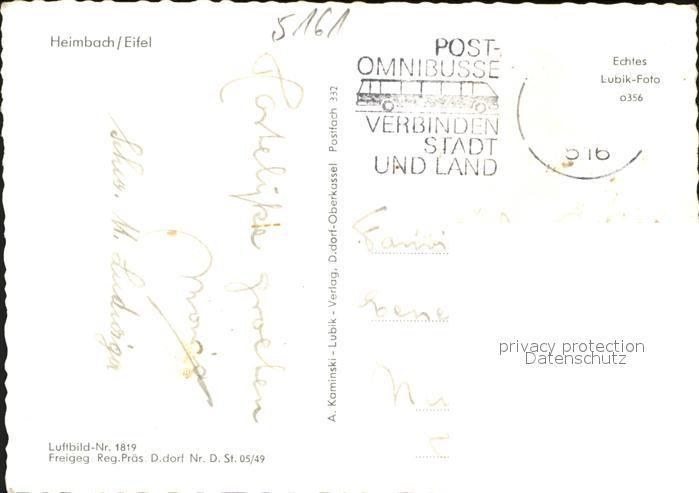 5161
Heimbach/Eifel
POST-
OMNIBUSSE
VERBINDEN
STADT
UND LAND
Echtes
Lubik-Foto
o356
516
Hartelijke groeten
Maria
Schw. M. Ludwiga
A. Kaminski - Lubik - Verlag, D.dorf-Oberkassel Postfach 332
Fami
privacy protection
Datenschutz
Luftbild-Nr. 1819
Freigeg. Reg.Präs. D.dorf Nr. D. St. 05/49